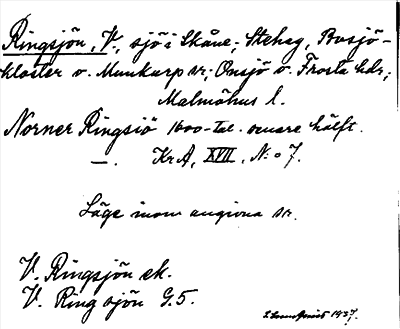 Ringsjön, V., sjö i Skåne; Stehag, Bosjö-
kloster o. Munkarp sr; Onsjö o. Frosta hdr;
Malmöhus l.
Norner Ringsiö 1600-tal. senare hälft.
—. KrA, XVII, N:o 7.
Läge inom angivna sr.
V. Ringsjön ek.
V. Ringsjön G.5.
1927.